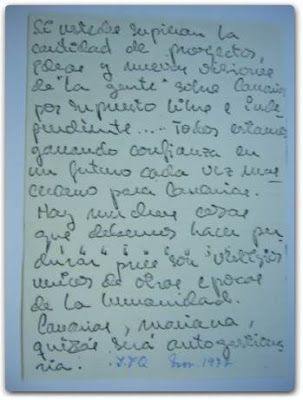 Si ustedes supieran la
cantidad de proyectos,
ideas y nuevas visiones
de "la gente" sobre Canarias
por supuesto libre e inde-
pendiente.... Todos estamos
ganando confianza en
un futuro cada vez mas
cercano para Canarias.
Hay muchas cosas
que debemos hacer per
durar pues son "vestigios"
unicos de otras epocas
de la humanidad.
Canarias, mañana,
quizás será autogestiona
ria. Nov. 1977